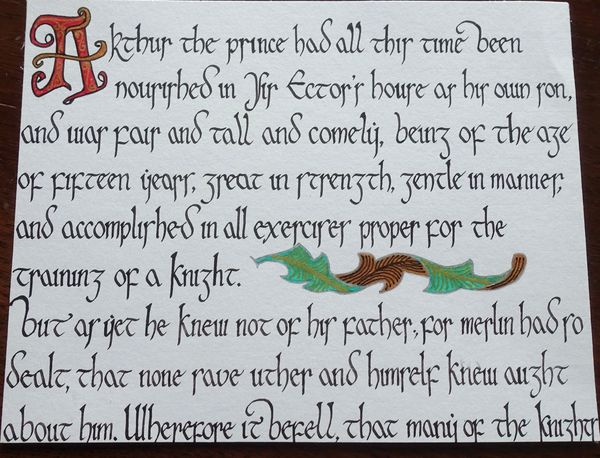 Arthur the prince had all this time been
nourished in Sir Ector's house as his own son,
and was fair and tall and comely, being of the age
of fifteen years, great in strength, gentle in manner,
and accomplished in all exercises proper for the
training of a knight.
But as yet he knew not of his father, for merlin had so
dealt, that none save uther and himself knew aught
about him. Wherefore it befell, that many of the knights